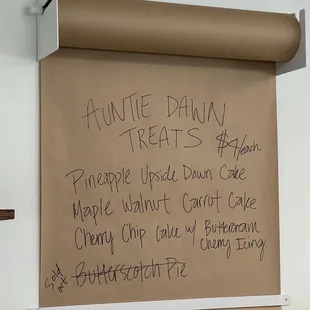 AUNTIE DAWN
TREATS $4/each
Pineapple Upside Down Cake
Maple Walnut Carrot Cake
Cherry Chip Cake w/ Buttercream
Cherry Icing
Sold out Butterscotch Pie